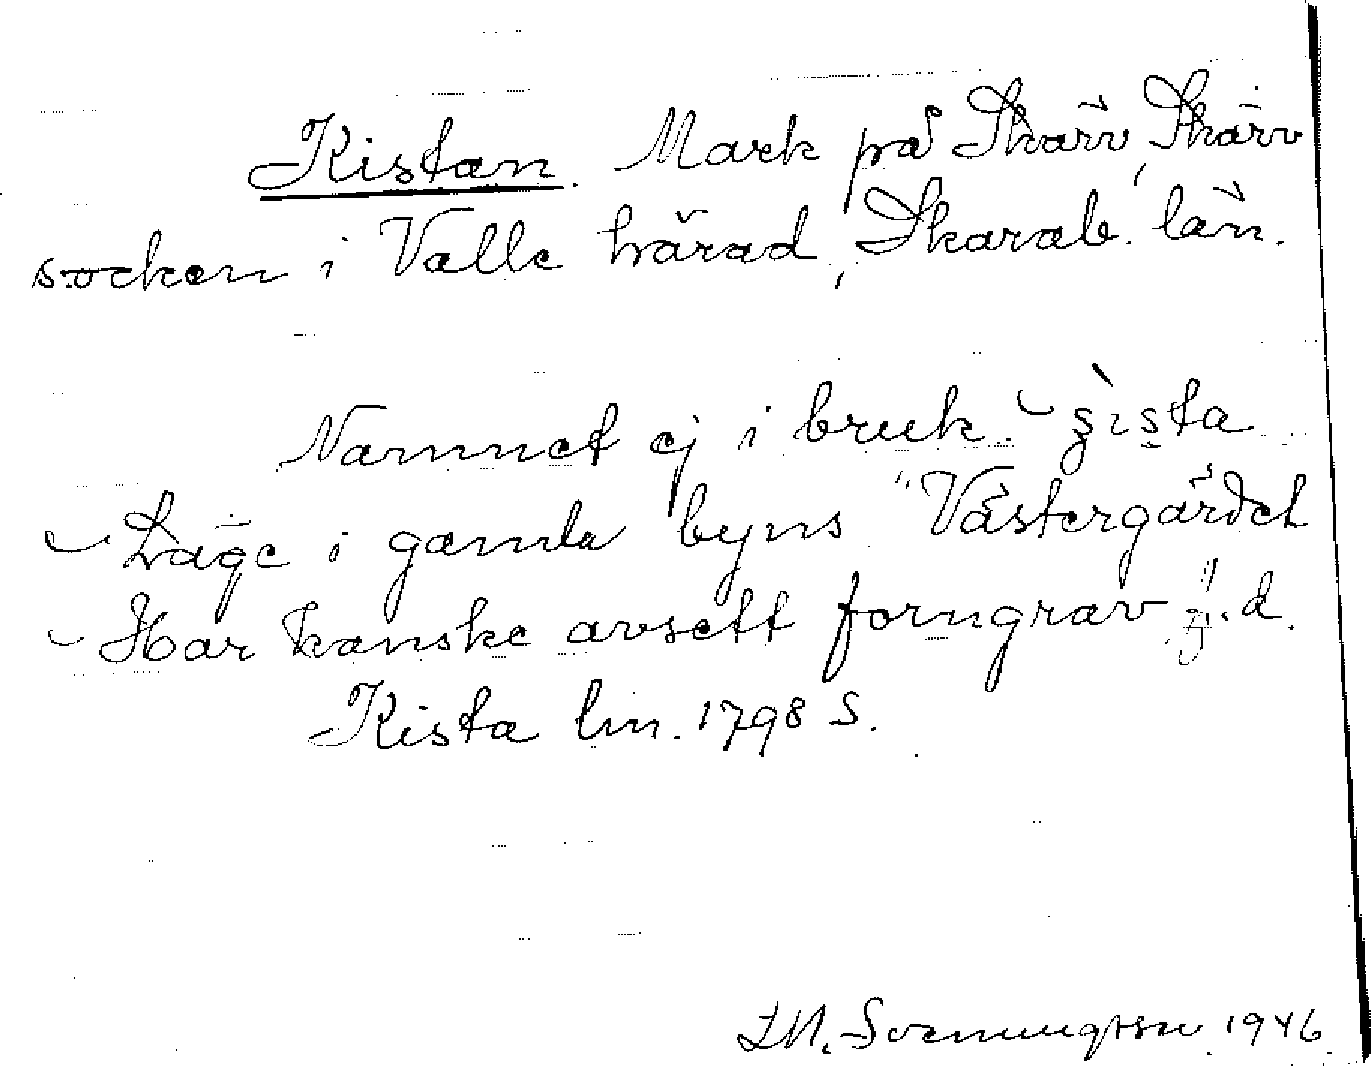 Kistan. Mark på Skärv, Skärv
socken i Valle härad, Skarab. län.
Namnet ej i bruk.
Läge i gamla byns "Västergärdet"
Har kanske avsett forngrav e.d.
Kista lm. 1798 S.
1946